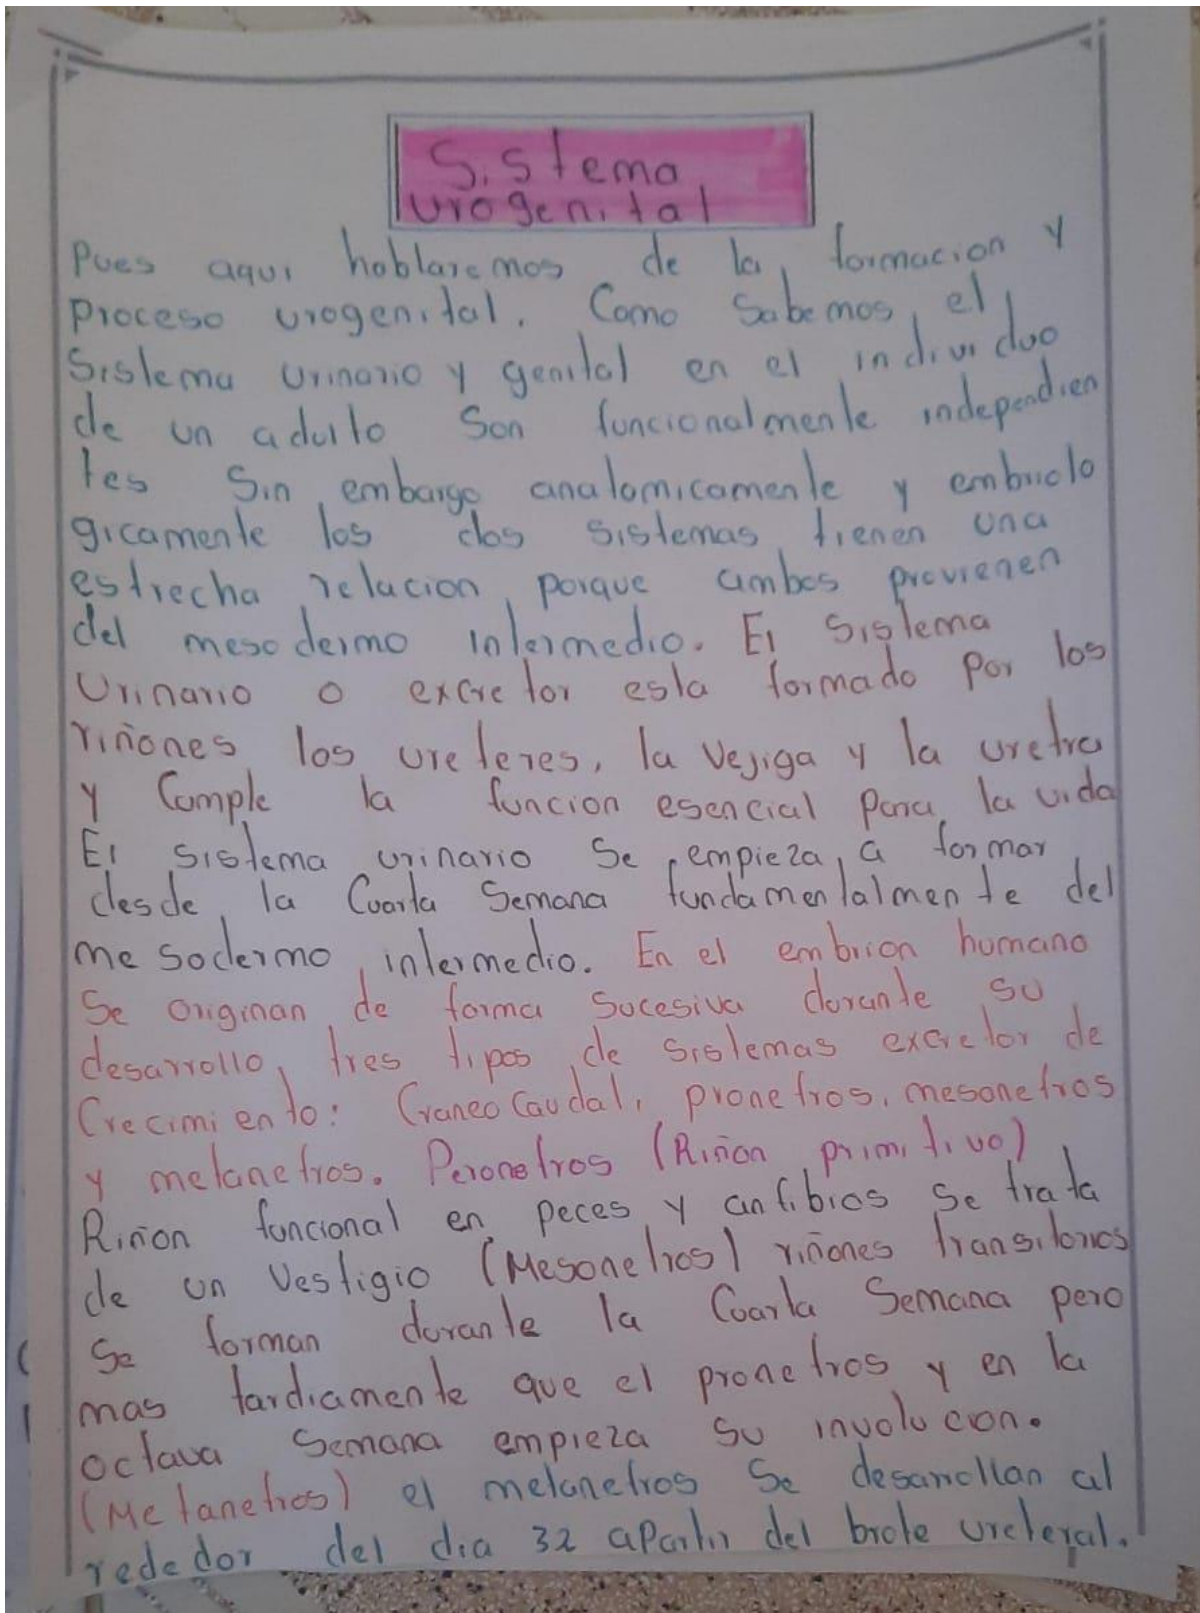 Sistema
urogenital
Pues aqui hablaremos de la formacion y
proceso urogenital. Como Sabemos el
Sistema urinario y genital en el individuo
de un adulto Son funcionalmente independien
tes Sin embargo anatomicamente y embriolo
gicamente los dos sistemas tienen una
estrecha relacion porque ambos provienen
del mesodermo intermedio. El Sistema
Urinario o excretor esta formado por los
riñones los ureteres, la Vejiga y la uretra
y Cumple la funcion esencial para la vida
El sistema urinario Se empieza a formar
desde la Cuarta Semana fundamentalmente del
mesodermo intermedio. En el embrion humano
Se originan de forma Sucesiva durante su
desarrollo, tres tipos de sistemas excretor de
Crecimiento: Craneo Caudal, pronefros, mesonefros
y metanefros. Peronefros (Riñon primitivo)
Riñon funcional en peces y anfibios Se trata
de un Vestigio (Mesonefros) riñones transitorios
Se forman durante la Cuarta Semana pero
mas tardiamente que el pronefros y en la
octava Semana empieza su involucion.
(Metanefros) el metanefros Se desarrollan al
rededor del dia 32 apartir del brote ureteral.